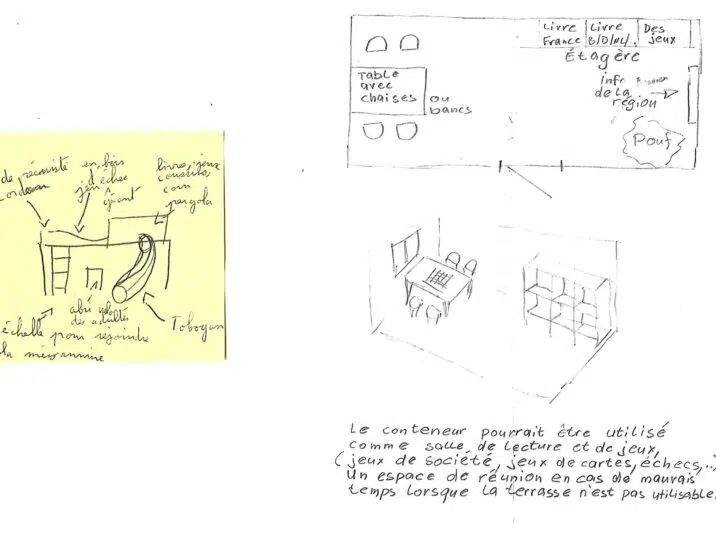 de sécurité
en bois
jeu d'échec
géant
livre, jeux
consoles,
com
pergola
abri vélo
des adultes
échelle pour rejoindre
la mezzanine
Tobogan
Livre
France
Livre
B/D/ALL.
Des
jeux
Étagère
Table
avec
chaises
ou
bancs
inf
de la
région
Pouf
Le conteneur pourrait être utilisé
comme salle de lecture et de jeux,
(jeux de société, jeux de cartes, échecs,..
Un espace de réunion en cas de mauvais
temps lorsque la terrasse n'est pas utilisable.